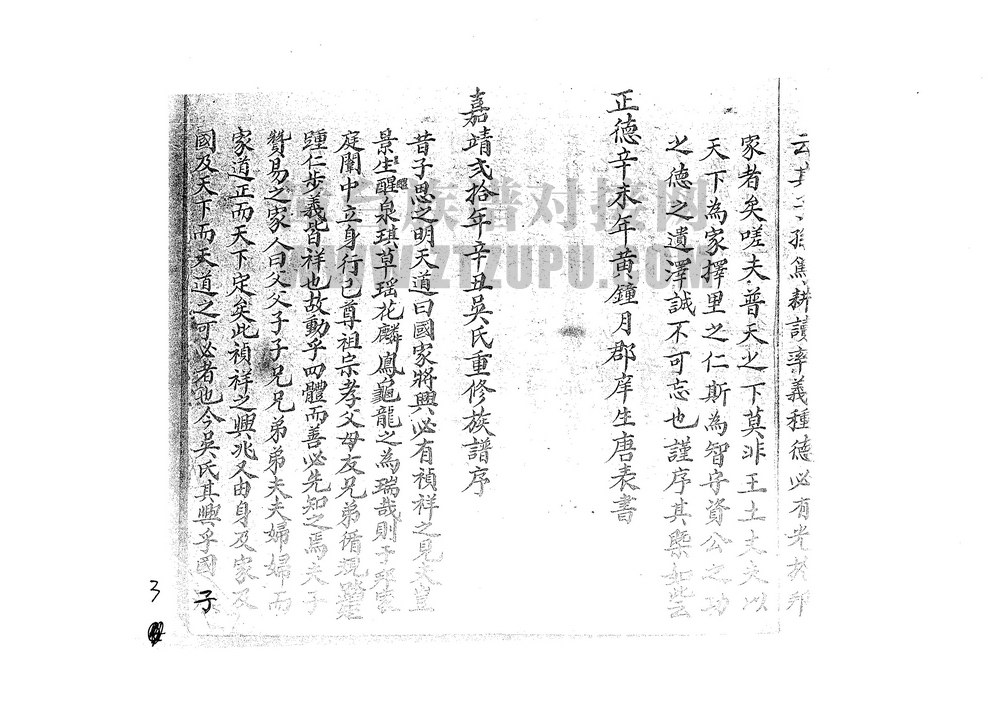 云其子孫焦耕讀率義種德必有光於邦
家者矣嗟夫普天之下莫非王土丈夫以
天下為家擇里之仁斯為智守資公之功
之德之遺澤誠不可忘也謹序其槩如此云
正德辛未年黃鐘月郡庠生唐表書
嘉靖弍拾年辛丑吳氏重修族譜序
昔子思之明天道曰國家將興必有禎祥之見夫豈
景生醒泉琪草瑤花麟鳳龜龍之為瑞哉則于
庭闈中立身行已尊祖宗孝父母友兄弟循規
踵仁步義皆祥也故動乎四體而善必先知之焉夫子
贊易之家人曰父父子子兄兄弟弟夫夫婦婦而
家道正而天下定矣此禎祥之興兆又由身及家及
國及天下而天道之可必者也今吳氏其興乎國
子
3
族谱对接网
WWW.ZTZUPU.COM